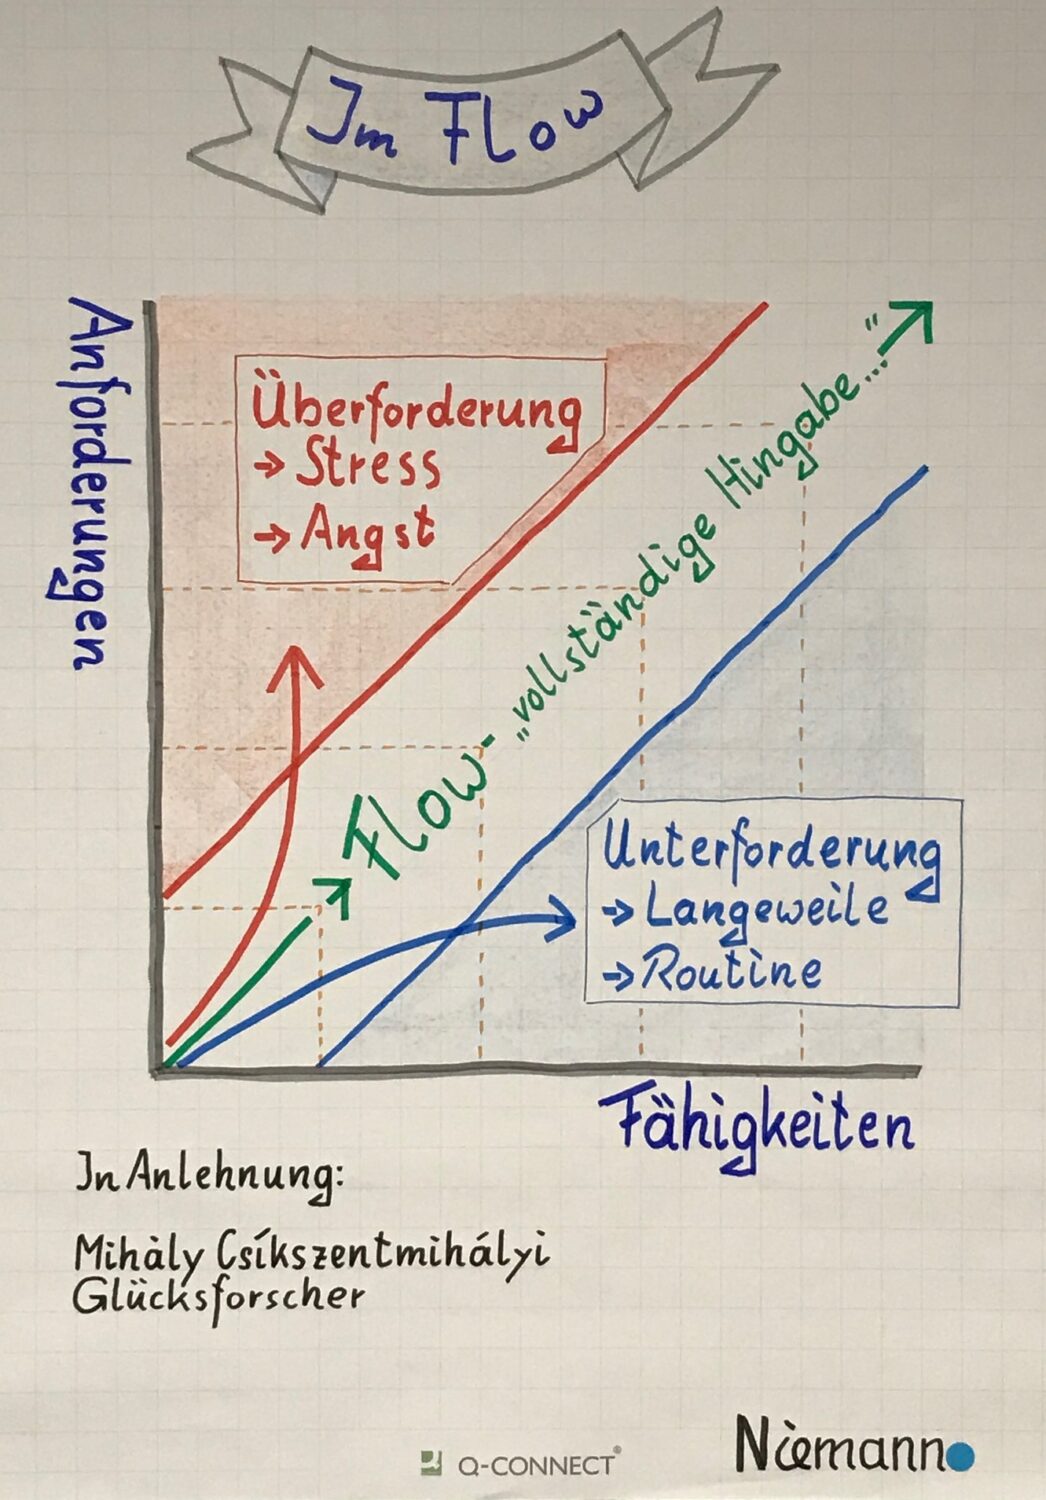 Im Flow
Anforderungen
Überforderung
→ Stress
→ Angst
Flow - „vollständige Hingabe..."
Unterforderung
→ Langeweile
→ Routine
Fähigkeiten
In Anlehnung:
Mihàly Csíkszentmihályi
Glücksforscher
Q-CONNECT®
Niemann